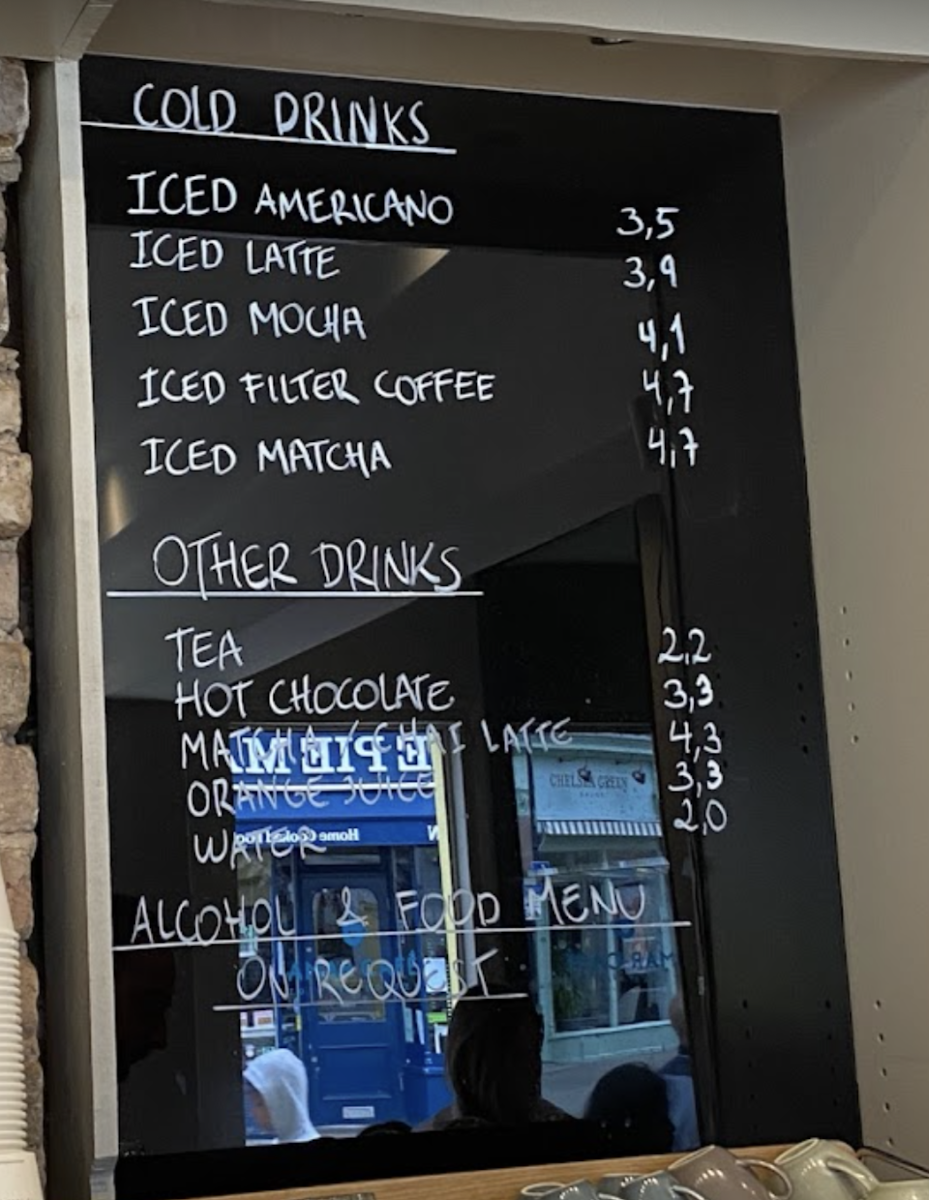 COLD DRINKS
ICED AMERICANO 3,5
ICED LATTE 3,9
ICED MOCHA 4,1
ICED FILTER COFFEE 4,7
ICED MATCHA 4,7
OTHER DRINKS
TEA 2,2
HOT CHOCOLATE 3,3
MATCHA / CHAI LATTE 4,3
ORANGE JUICE 3,3
WATER 2,0
ALCOHOL & FOOD MENU
ON REQUEST
E PIE M
CHELSEA GREEN
Home Cooked